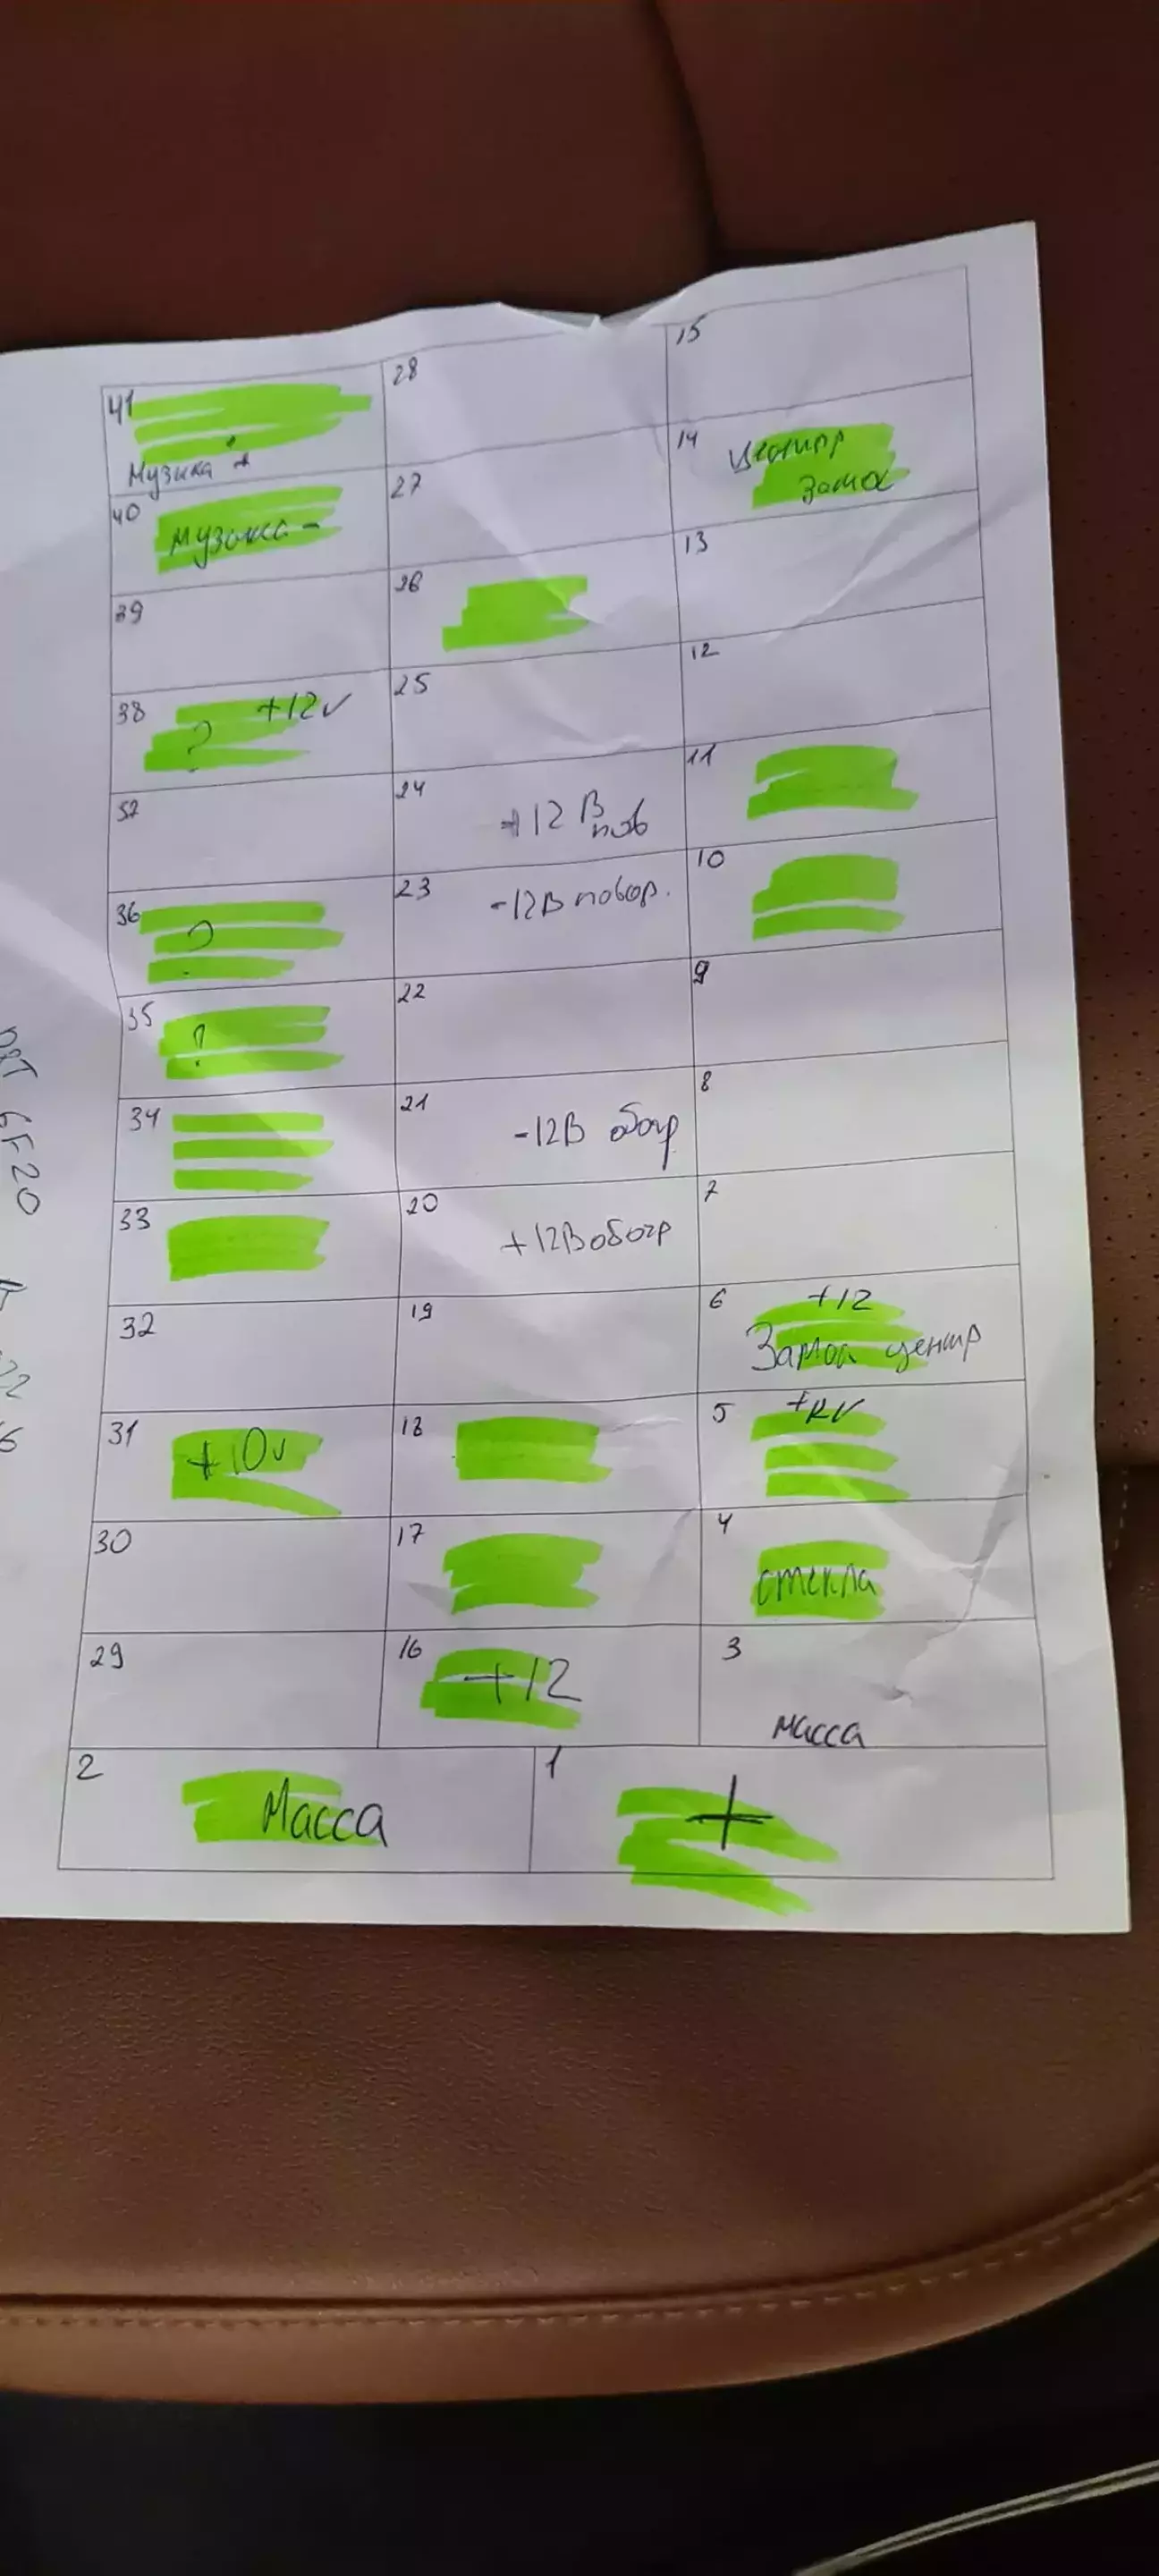 41
Музика +
40
музика -
39
38 +12v
?
37
36
?
35
?
34
33
32
31
+10v
30
29
28
27
26
25
24
+12 В
пов
23
-12В повор.
22
21
-12В обогр
20
+12В обогр
19
18
17
16
+12
15
14
Центр
замок
13
12
11
10
9
8
7
6
+12
Замок центр
5
4
стекла
3
масса
2
Масса
1
+
6F20